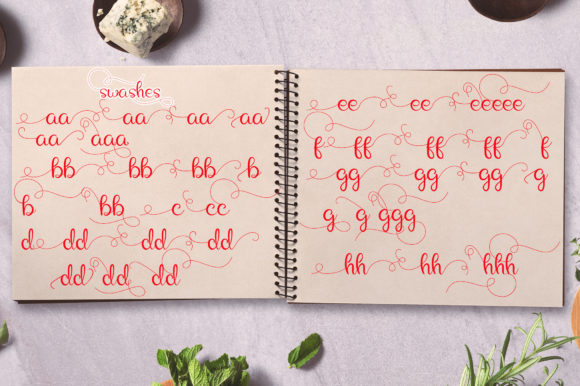 swashes
aa aa aa aa
aa aaa
bb bb bb b
b bb c cc
d dd dd dd
dd dd dd
ee ee eeeee
f ff ff ff f
gg gg gg g
g g ggg
hh hh hhh